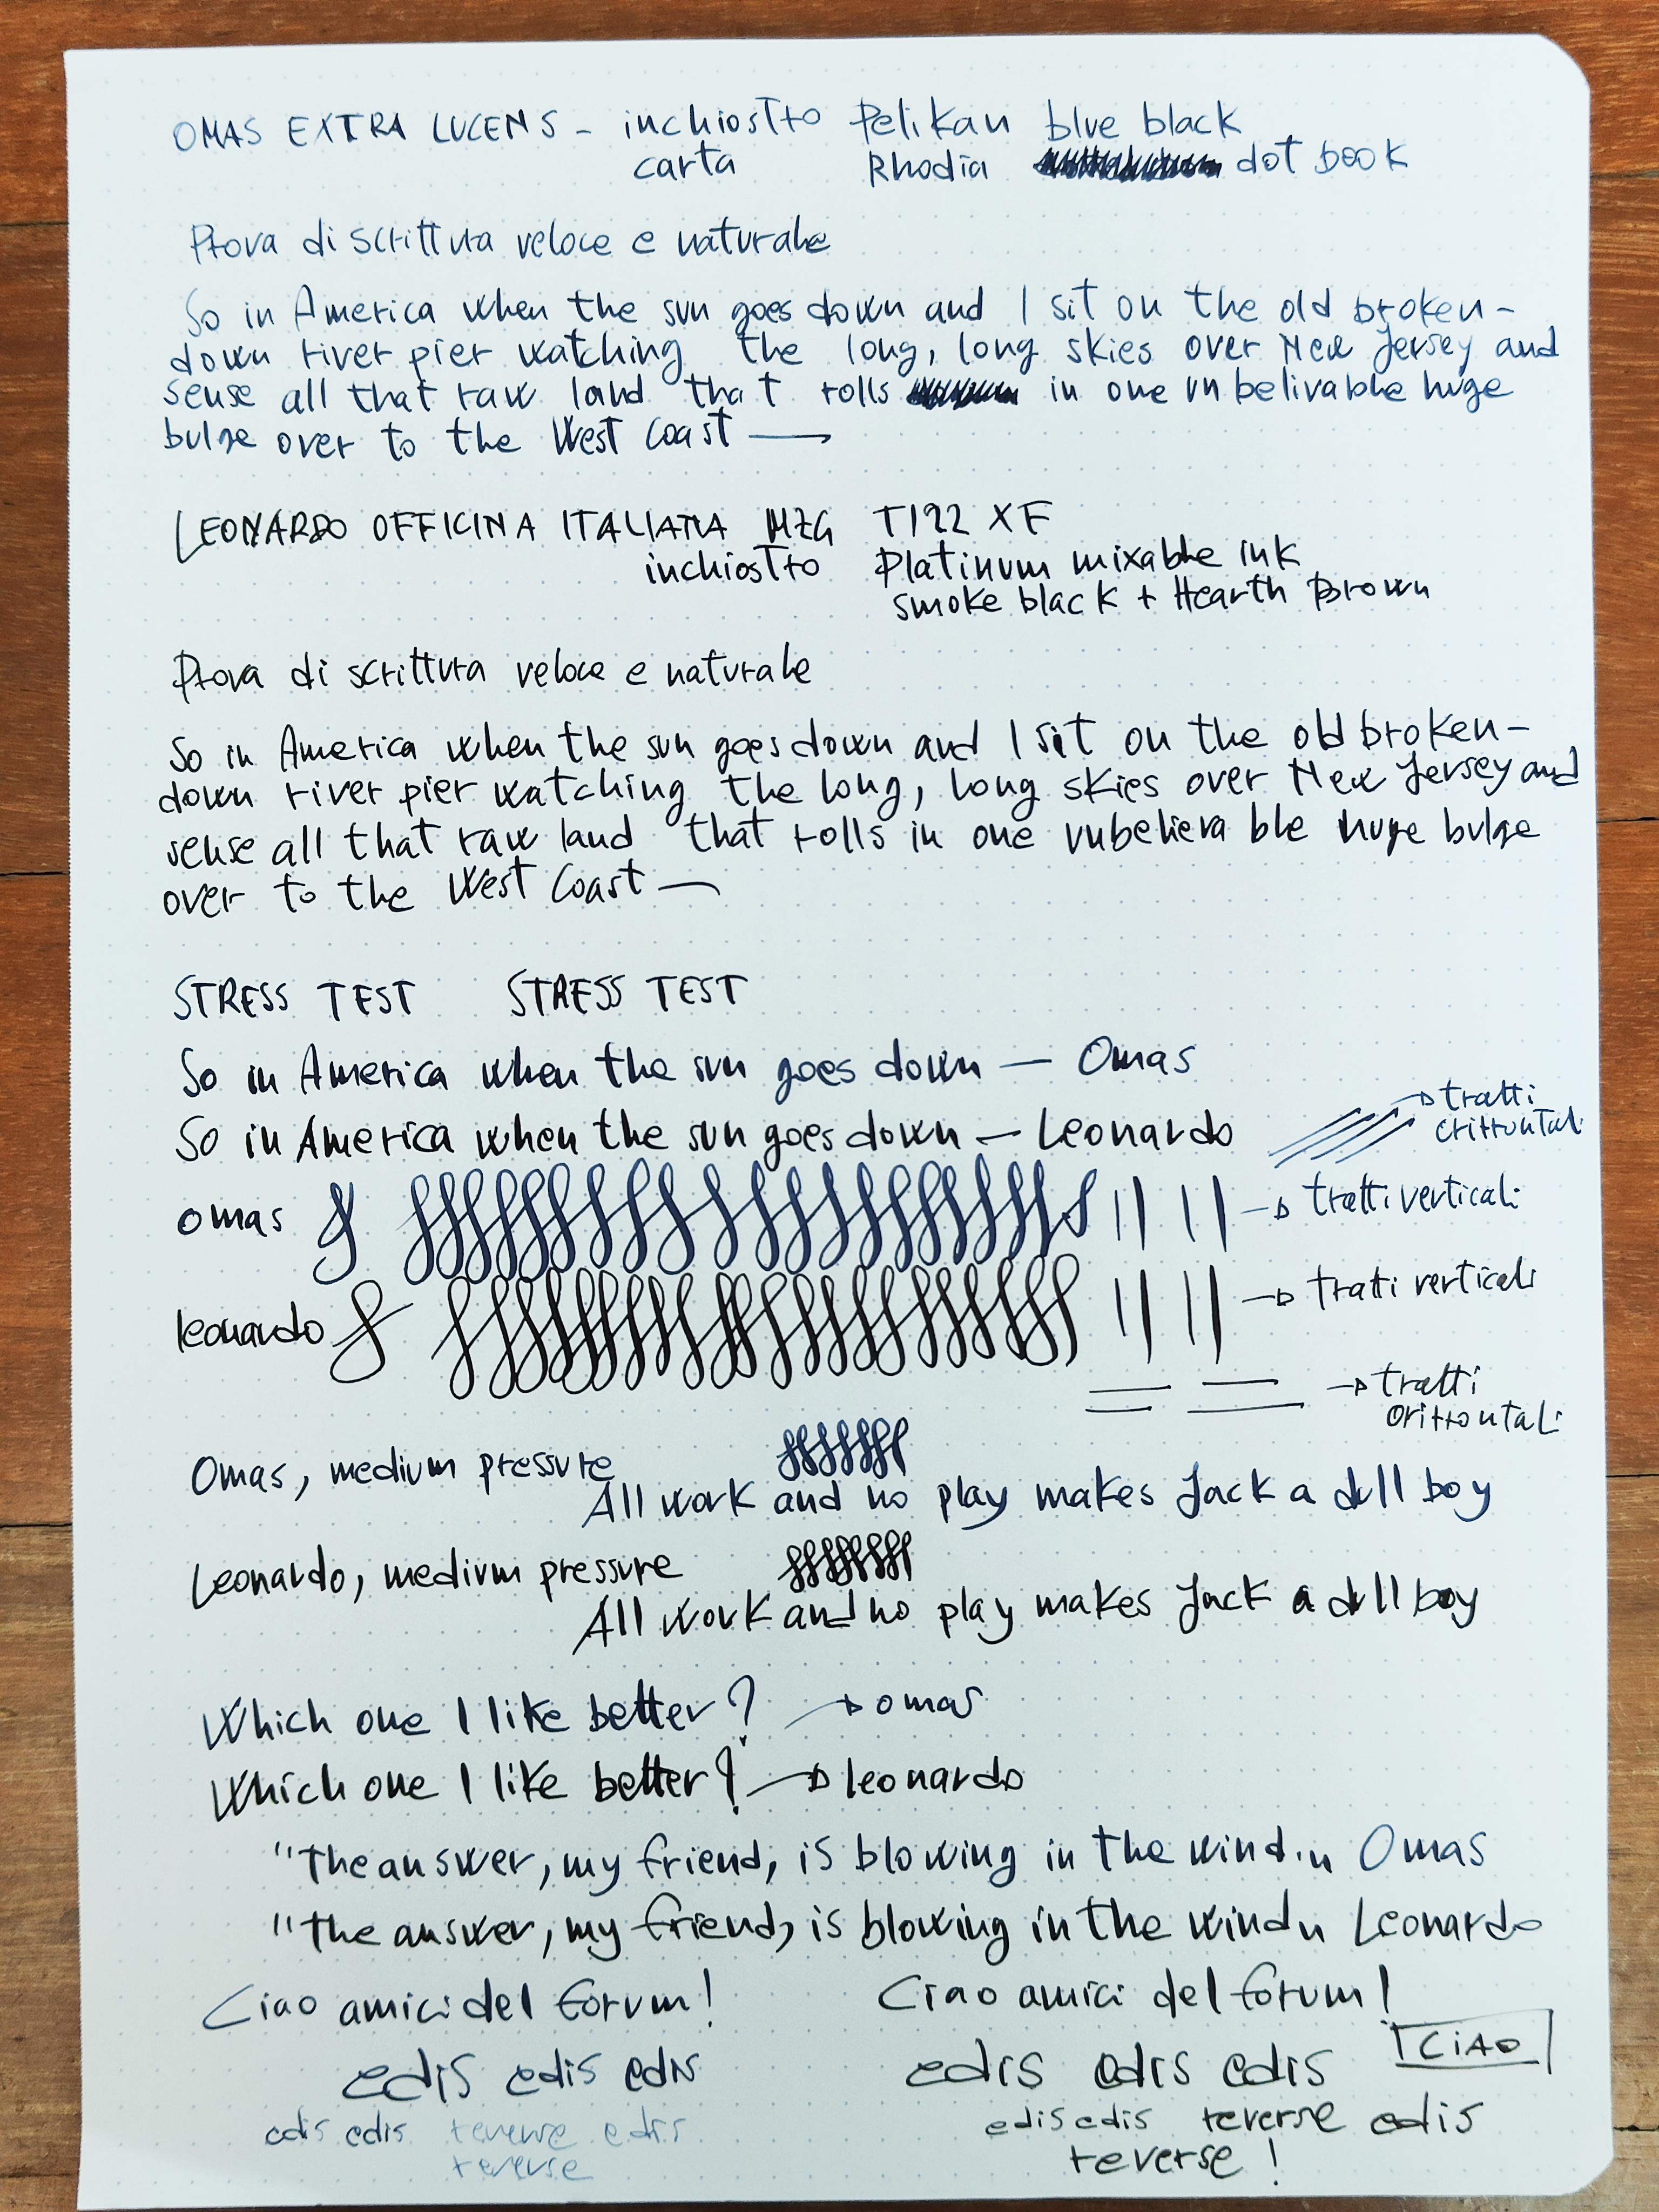 OMAS EXTRA LUCENS - inchiostro Pelikan blue black
carta Rhodia dot book
Prova di scrittura veloce e naturale
So in America when the sun goes down and I sit on the old broken-
down river pier watching the long, long skies over New Jersey and
sense all that raw land that rolls in one unbelivable huge
bulge over to the West Coast —
LEONARDO OFFICINA ITALIANA MZG T122 XF
inchiostro Platinum mixable ink
smoke black + Hearth Brown
Prova di scrittura veloce e naturale
So in America when the sun goes down and I sit on the old broken-
down river pier watching the long, long skies over New Jersey and
sense all that raw land that rolls in one unbelievable huge bulge
over to the West Coast —
STRESS TEST STRESS TEST
So in America when the sun goes down — Omas
So in America when the sun goes down — Leonardo
→ tratti
orizzontali
omas → tratti verticali
leonardo → tratti verticali
→ tratti
orizzontali
Omas, medium pressure
All work and no play makes Jack a dull boy
Leonardo, medium pressure
All work and no play makes Jack a dull boy
Which one I like better? → omas
Which one I like better? → leonardo
"The answer, my friend, is blowing in the wind." Omas
"The answer, my friend, is blowing in the wind" Leonardo
Ciao amici del forum! Ciao amici del forum!
CIAO
edis edis edis edis edis edis
edis edis reverse edis edis edis reverse edis
reverse reverse!